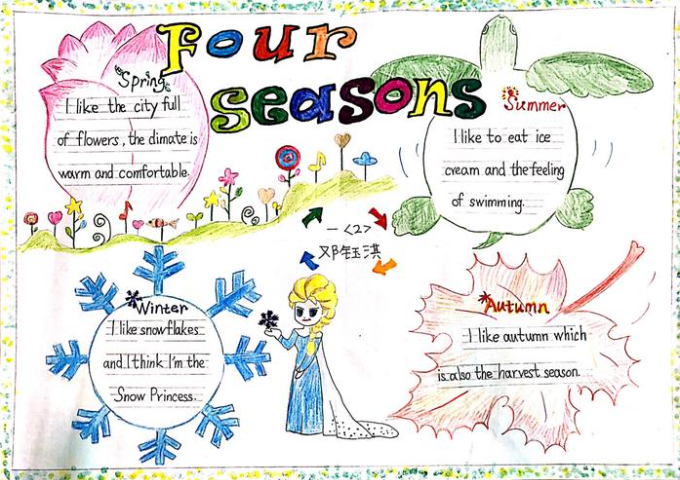 Four
seasons
Spring
I like the city full
of flowers, the dimate is
warm and comfortable.
Summer
I like to eat ice
cream and the feeling
of swimming.
一<2>
邓钰淇
Winter
I like snowflakes
and I think I'm the
Snow Princess.
Autumn
I like autumn which
is also the harvest season.